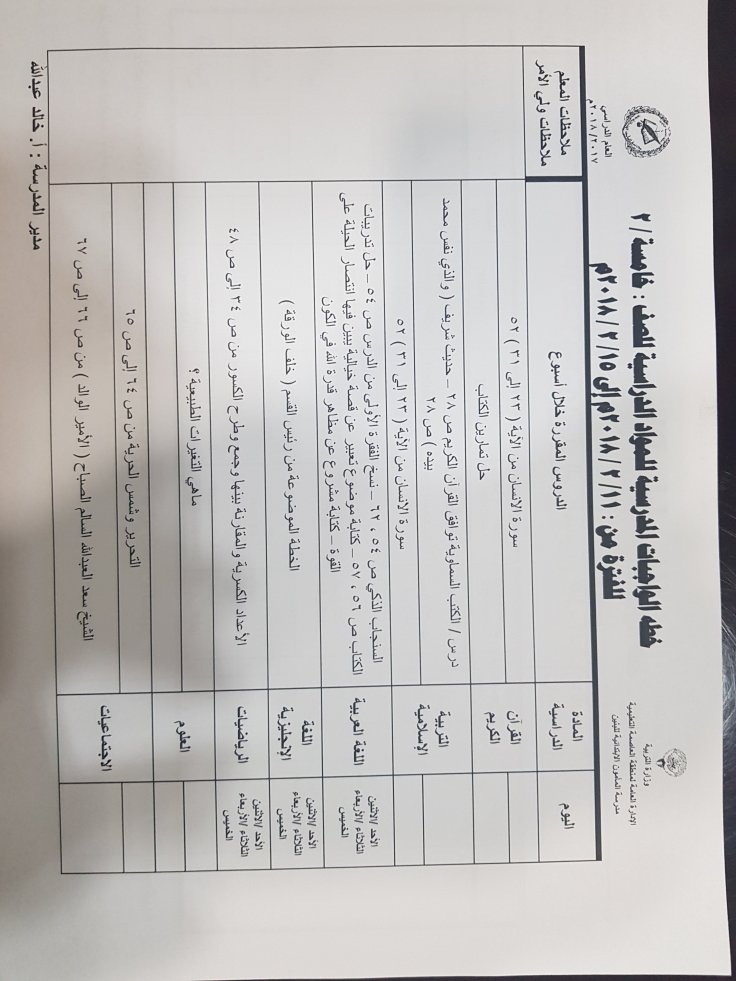 وزارة التربية
الإدارة العامة لمنطقة العاصمة التعليمية
مدرسة المأمون الابتدائية للبنين
خطة الواجبات المدرسية للمواد الدراسية للصف : خامسة / ٢
للفترة من : ١١ / ٢ / ٢٠١٨م إلى ١٥ / ٢ / ٢٠١٨م
العام الدراسي
٢٠١٨/٢٠١٧م
اليوم
المادة الدراسية
الدروس المقررة خلال أسبوع
ملاحظات المعلم
ملاحظات ولي الأمر
القرآن الكريم
سورة الانسان من الآية ( ٢٣ الى ٣١ ) ٥٢
حل تمارين الكتاب
التربية الإسلامية
درس / الكتب السماوية توافق القرآن الكريم ص ٢٨ – حديث شريف ( والذي نفس محمد
بيده ) ص ٢٨
سورة الانسان من الآية ( ٢٣ الى ٣١ ) ٥٢
الأحد /الاثنين
الثلاثاء /الأربعاء
الخميس
اللغة العربية
السنجاب الذكي ص ٥٤ ، ٦٢ – نسخ الفقرة الأولى من الدرس ص ٥٤ – حل تدريبات
الكتاب ص ٥٦ ، ٥٧ – كتابة موضوع تعبير عن قصة خيالية يبين فيها انتصار الحيلة على
القوة – كتابة مشروع عن مظاهر قدرة الله في الكون
الأحد /الاثنين
الثلاثاء /الأربعاء
الخميس
اللغة الإنجليزية
الخطة الموضوعة من رئيس القسم ( خلف الورقة )
الأحد /الاثنين
الثلاثاء /الأربعاء
الخميس
الرياضيات
الأعداد الكسرية والمقارنة بينها وجمع وطرح الكسور من ص ٣٤ إلى ص ٤٨
العلوم
ماهي التغيرات الطبيعية ؟
الاجتماعيات
التحرير وشمس الحرية من ص ٦٤ إلى ص ٦٥
الشيخ سعد العبدالله السالم الصباح ( الأمير الوالد ) من ص ٦٦ إلى ص ٦٧
مدير المدرسة : أ. خالد عبدالله